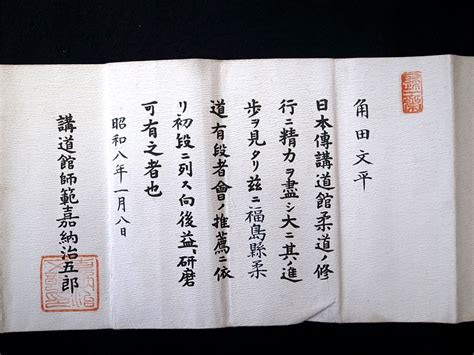 角田文平
日本傳講道館柔道ノ修
行ニ精力ヲ盡シ大ニ其ノ進
歩ヲ見タリ玆ニ福島縣柔
道有段者會ノ推薦ニ依
リ初段ニ列ス向後益〻研磨
可有之者也
昭和八年一月八日
講道館師範嘉納治五郎